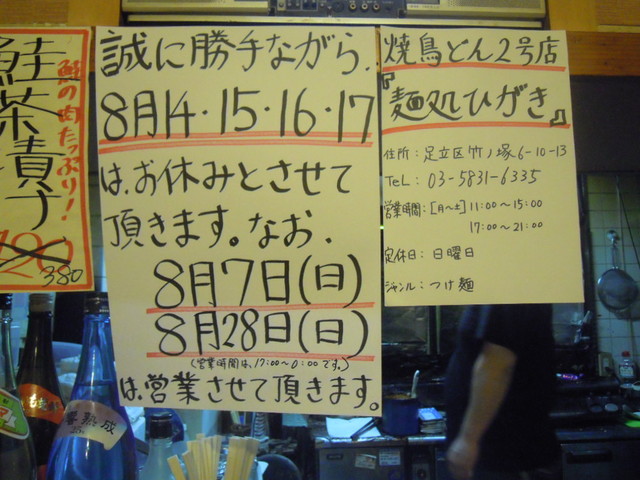 鮭茶漬け
鮭の肉たっぷり!
380
誠に勝手ながら、
8月14・15・16・17
は、お休みとさせて
頂きます。なお、
8月7日(日)
8月28日(日)
(営業時間は、17:00～0:00です。)
は、営業させて頂きます。
焼鳥どん2号店
『麺処ひがき』
住所:足立区竹ノ塚6-10-13
TEL: 03-5831-6335
営業時間:[月～土]11:00～15:00
17:00～21:00
定休日:日曜日
ジャンル:つけ麺